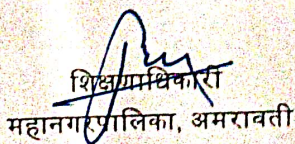 शिक्षणाधिकारी
महानगरपालिका, अमरावती